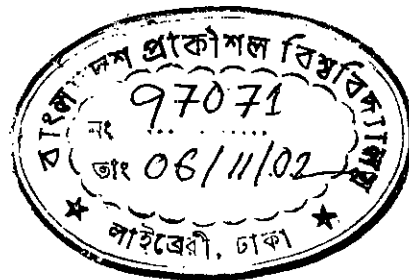 বাংলাদেশ প্রকৌশল বিশ্ববিদ্যালয়
নং 97071
তাং 06/11/02
লাইব্রেরী, ঢাকা